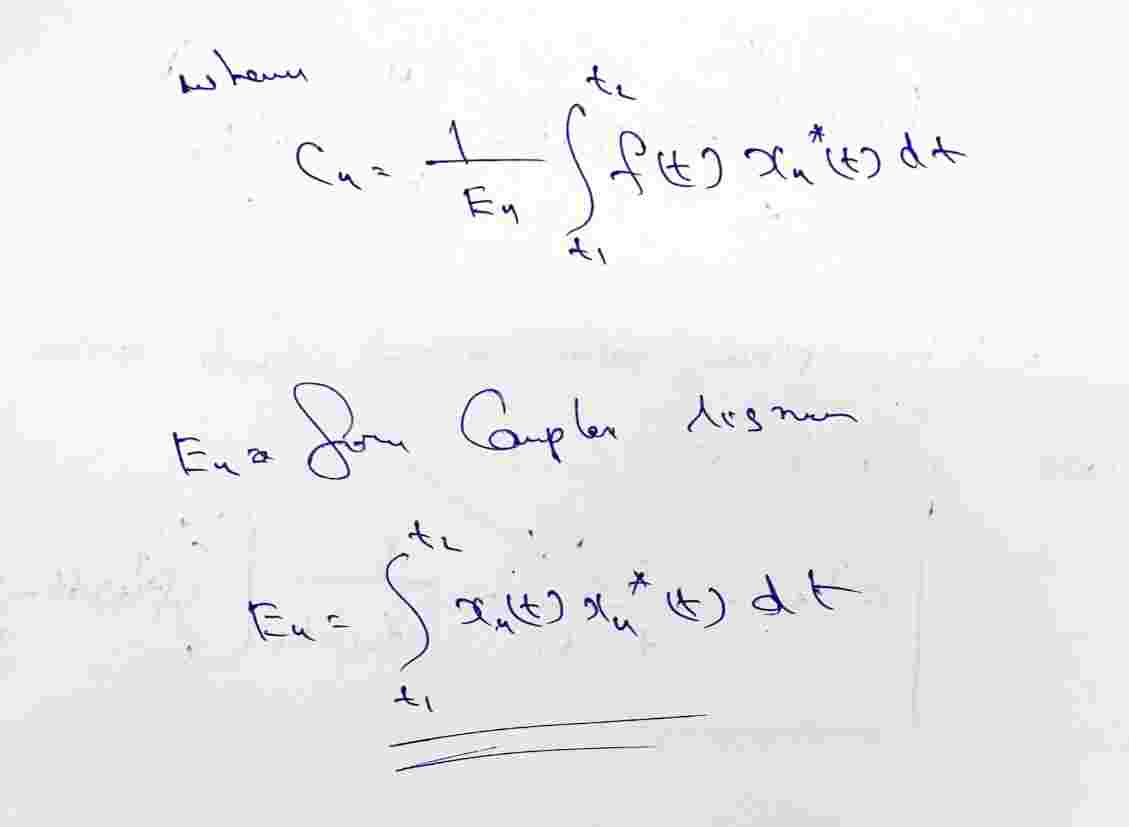 where
Cn = 1/En ∫_{t1}^{t2} f(t) xn*(t) dt
En = for Complex
En = ∫_{t1}^{t2} xn(t) xn*(t) dt